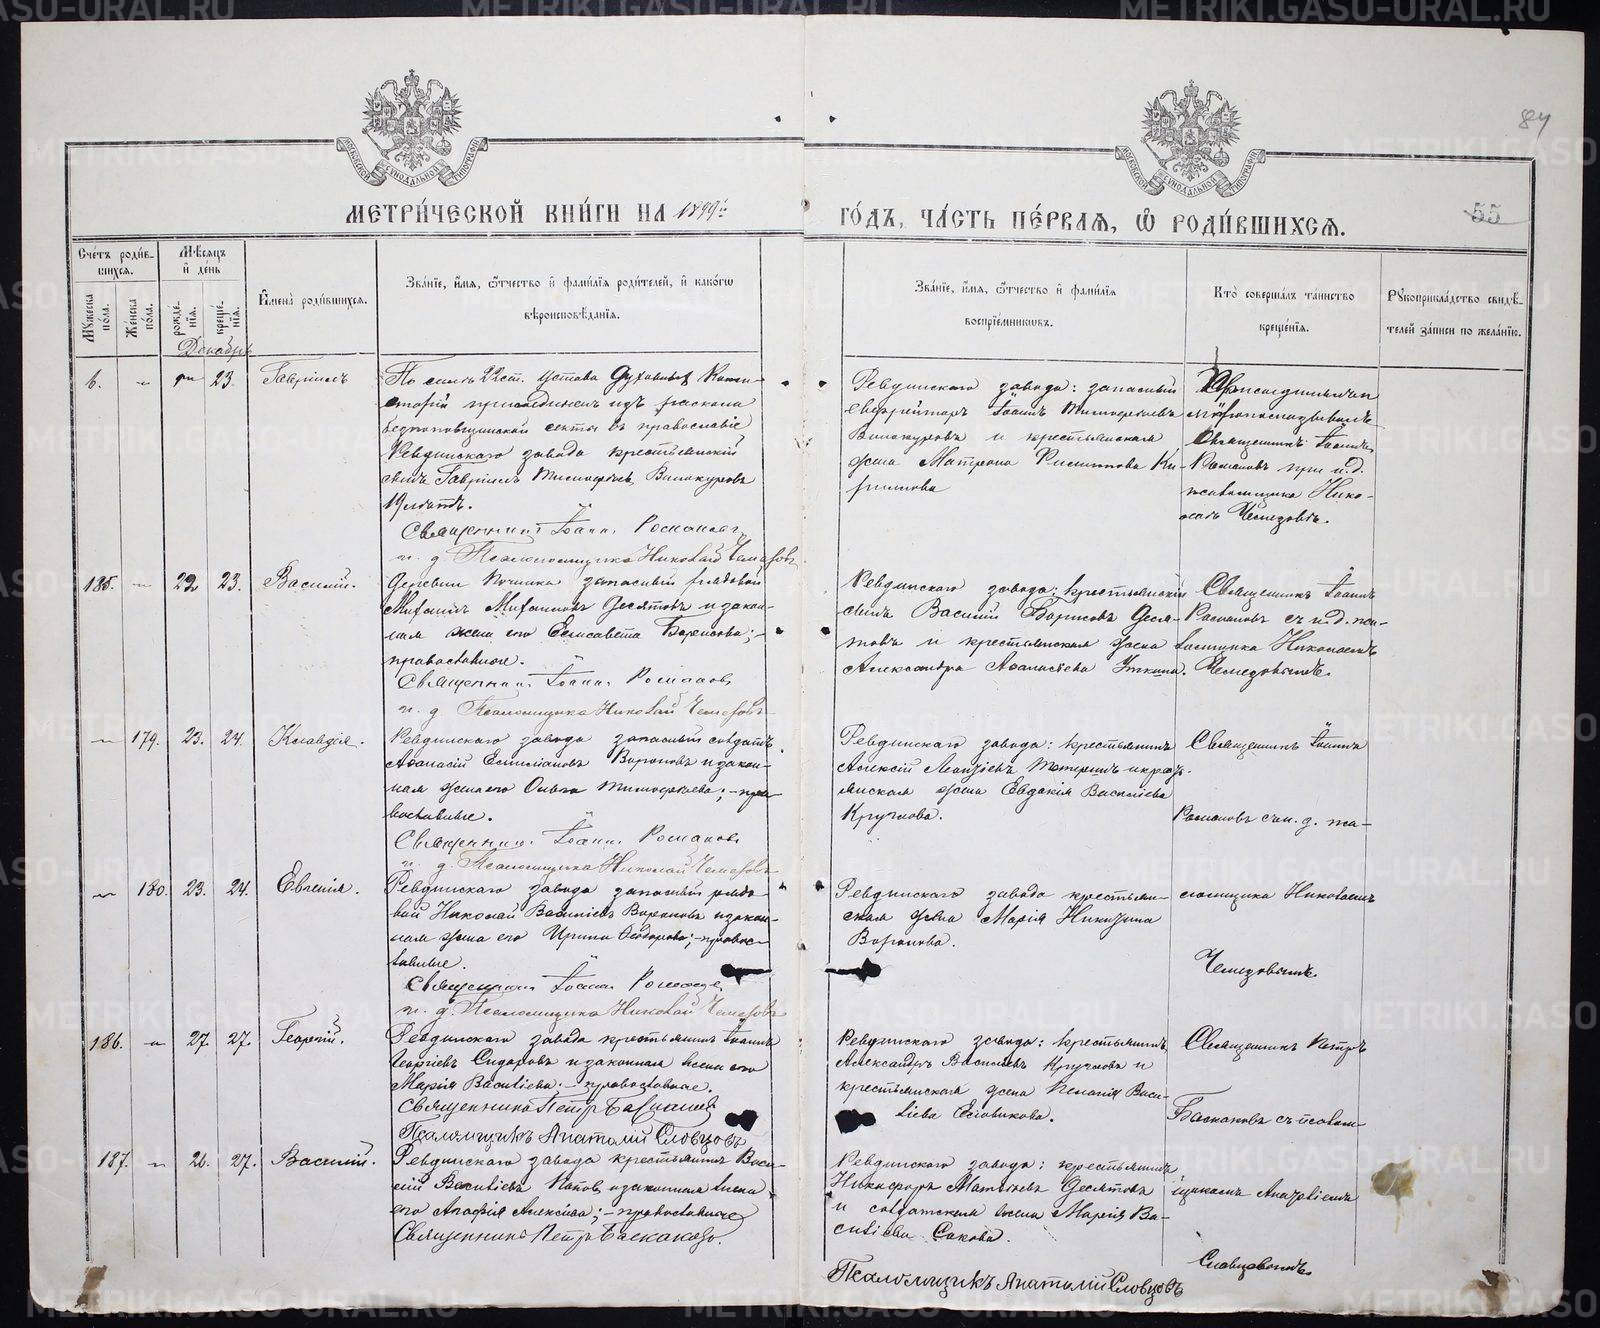 84
МЕТРИ́ЧЕСКОЙ КНИ́ГИ НА 1899й
ГО́ДЪ, ЧА́СТЬ ПЕ́РВАѦ, Ѡ҆ РОДИ́ВШИХСѦ.
55
Сче́тъ роди́вшихся.
Мѣ́сяцъ и҆ де́нь
Мꙋ́жеска по́ла.
Же́нска по́ла.
рожде́нїя.
креще́нїя.
И҆мена̀ роди́вшихся.
Зва́нїе, и҆́мѧ, ѻ҆́тчество и҆ фами́лїѧ роди́телей, и҆ како́гѡ
вѣроисповѣ́данїѧ.
Зва́нїе, и҆́мѧ, ѻ҆́тчество и҆ фами́лїѧ
воспрїе́мникѡвъ.
Кто̀ соверша́лъ та́инство
креще́нїѧ.
Рꙋкоприкла́дство свидѣ́телей за́писи по жела́нїю.
Декабрь
6. 23. Гавріилъ
По силѣ 22 ст. Устава Духовныхъ Конси-
сторій присоединенъ изъ раскола
безпоповщинской секты въ православіе
Ревдинскаго завода крестьянскій
сынъ Гавріилъ Тимофѣевъ Винокуровъ
19 лѣтъ.
Священникъ Іоаннъ Романовъ
и. д. Псаломщика Николай Чемезовъ
Ревдинскаго завода: запасный
ефрейторъ Іоаннъ Тимофѣевъ
Винокуровъ и крестьянская
жена Матрона Филиппова Ки-
риллова
Священникъ Іоаннъ
Романовъ при и. д.
псаломщика Нико-
лаѣ Чемезовѣ.
185. 22 23. Василій.
Деревни Починка запасный рядовой
Михаилъ Михаиловъ Десятовъ и закон-
ная жена его Елисавета Борисова;
православные.
Священникъ Іоаннъ Романовъ
и. д. Псаломщика Николай Чемезовъ
Ревдинскаго завода: крестьянскій
сынъ Василій Борисовъ Деся-
товъ и крестьянская жена
Александра Аѳанасіева Уткина.
Священникъ Іоаннъ
Романовъ съ и. д. пса-
ломщика Николаемъ
Чемезовымъ.
179. 23. 24. Клавдія.
Ревдинскаго завода запасный солдатъ
Аѳанасій Вороновъ и закон-
ная жена его Ольга Тимофѣева; -пра-
вославные.
Священникъ Іоаннъ Романовъ
и. д. Псаломщика Николай Чемезовъ
Ревдинскаго завода: крестьянинъ
Алексій и крестья-
янская жена Евдокія Василіева
Кручкова.
Священникъ Іоаннъ
Романовъ съ и. д. пса-
180. 23. 24. Евгенія.
Ревдинскаго завода запасный рядо-
вой Николай Василіевъ Вороновъ и закон-
ная жена его Ирина Ѳеодорова; -правос-
лавные.
Священникъ Іоаннъ Романовъ
и. д. Псаломщика Николай Чемезовъ
Ревдинскаго завода крестьян-
ская жена Марія Никитина
Воронова.
ломщика Николаемъ
Чемезовымъ.
186. 27. 27. Георгій.
Ревдинскаго завода крестьянинъ Іоаннъ
Георгіевъ Сидоровъ и законная жена его
Марія Василіева. -православные.
Священникъ Петръ Баскаковъ
Псаломщикъ Анатолій Словцовъ
Ревдинскаго завода: крестьянинъ
Александръ Василіевъ Кручковъ и
крестьянская жена Пелагія Васи-
ліева Еловикова.
Священникъ Петръ
Баскаковъ съ псалом-
187. 26. 27. Василій.
Ревдинскаго завода крестьянинъ Васи-
лій Василіевъ Поповъ и законная жена
его Агафія Алексіева; -православные
Священникъ Петръ Баскаковъ.
Ревдинскаго завода: крестьянинъ
Никифоръ Матвѣевъ Десятовъ
и солдатская жена Марія Ва-
силіева Сокова.
щикомъ Анатоліемъ
Словцовымъ.
Псаломщикъ Анатолій Словцовъ